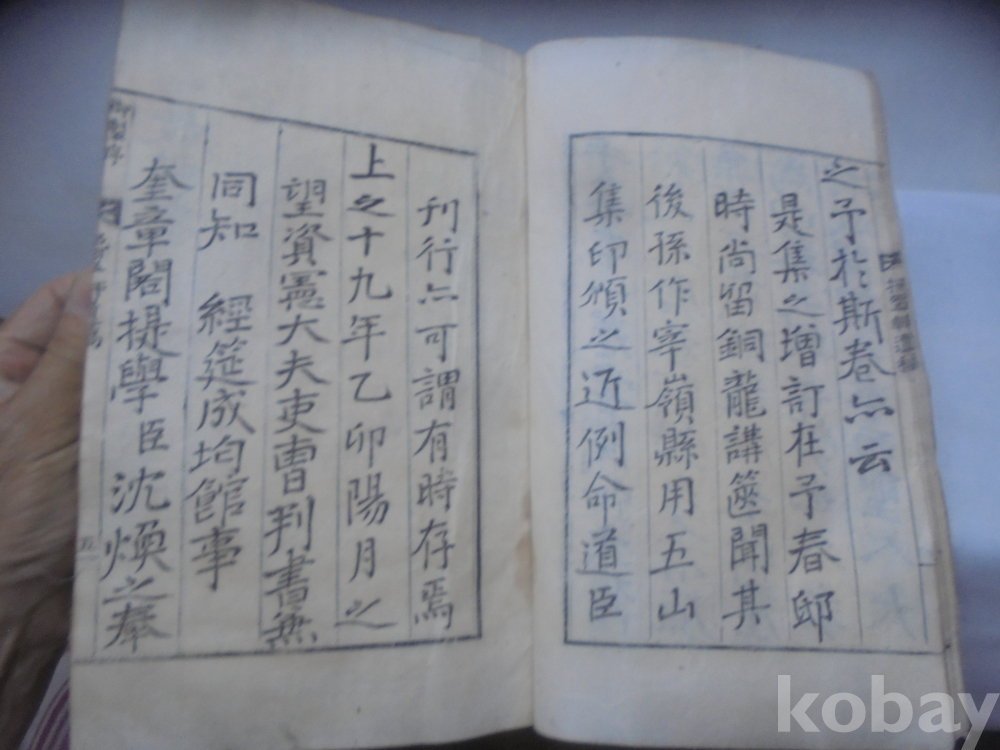 之予於斯卷亦云
是集之增訂在予春邸
時尚留銅龍講筵聞其
後孫作宰嶺縣用五山
集印頒之近例命道臣
刊行亦可謂有時存焉
上之十九年乙卯陽月之
望資憲大夫吏曹判書兼
同知 經筵成均館事
奎章閣提學臣沈煥之奉
御製序
五
kobay